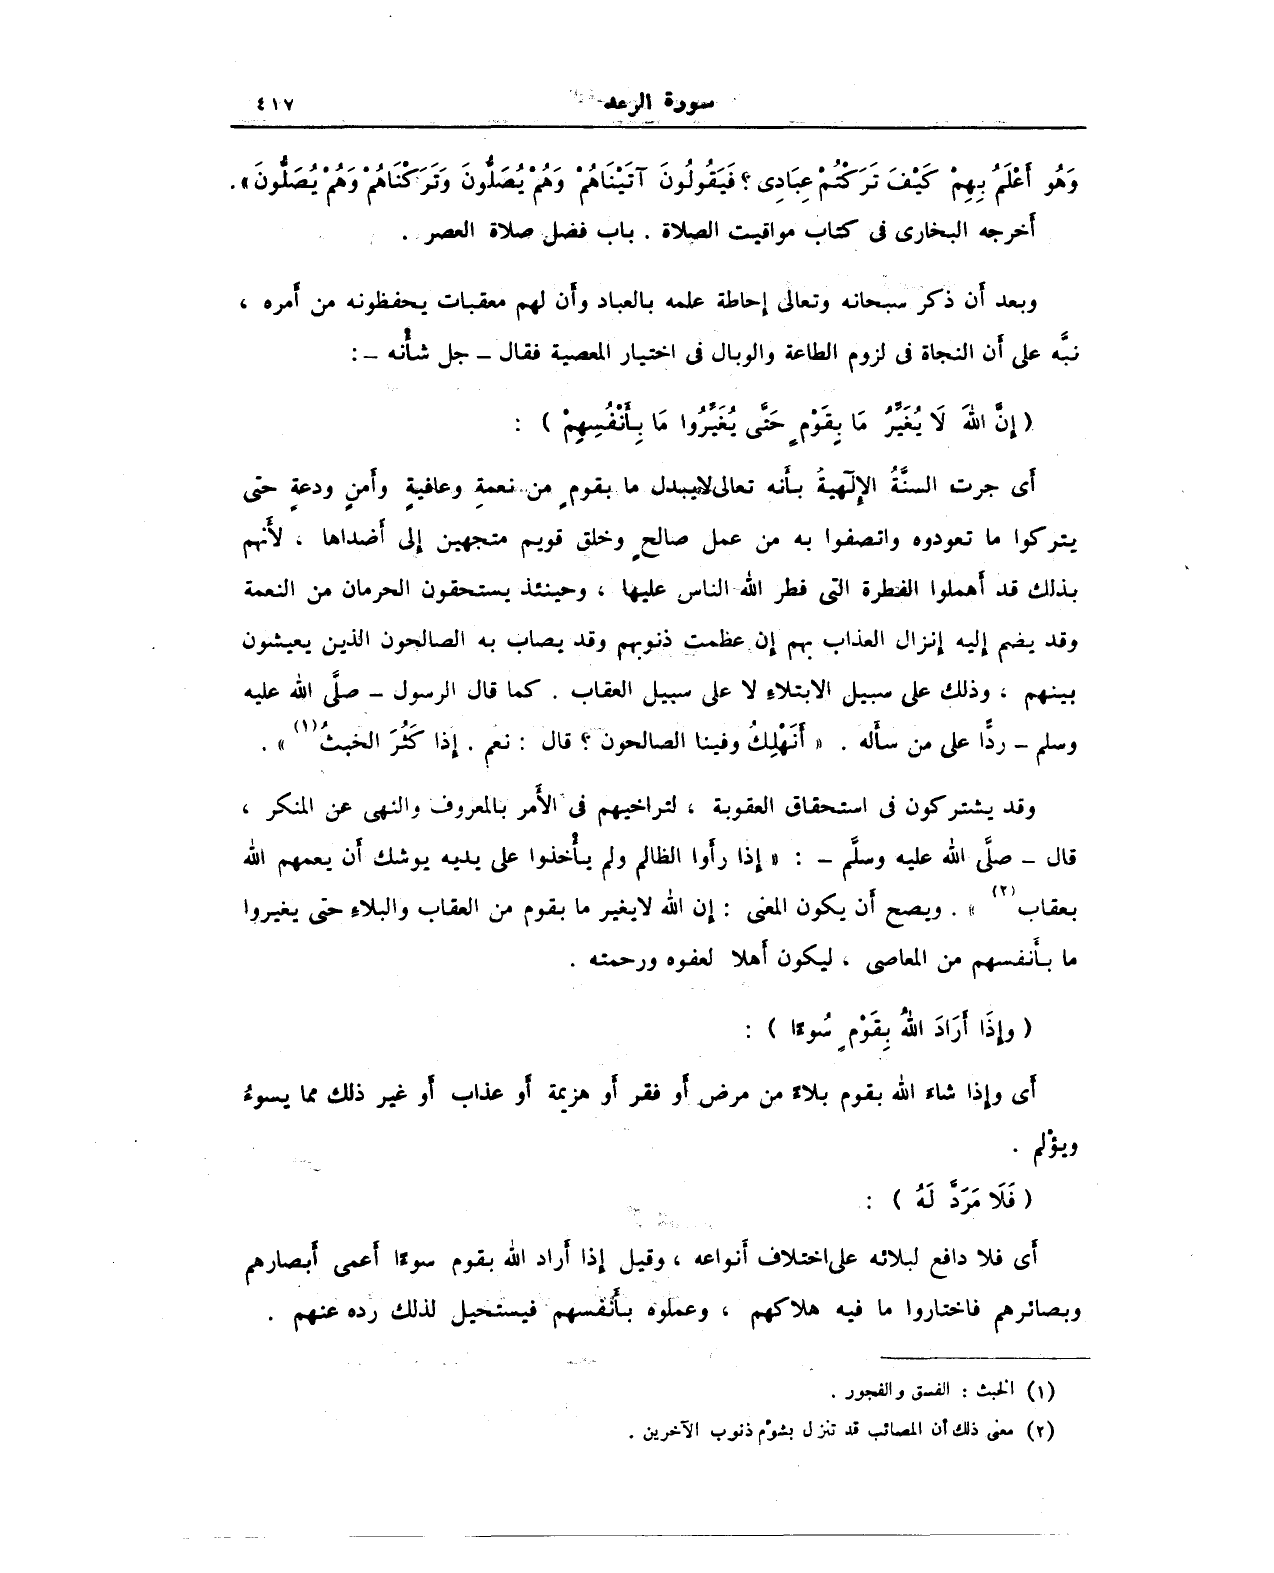 سورة الرعد ٤١٧
وَهُو أَعْلَمُ بِهِمْ كَيْفَ تَرَكْتُمْ عِبَادِى ؟ فَيَقُولُونَ آتَيْنَاهُمْ وَهُمْ يُصَلُّونَ وَتَرَكْنَاهُمْ وَهُمْ يُصَلُّونَ » .
أخرجه البخارى فى كتاب مواقيت الصلاة . باب فضل صلاة العصر .
وبعد أن ذكر سبحانه وتعالى إحاطة علمه بالعباد وأن لهم معقبات يحفظونه من أمره ،
نبَّه على أن النجاة فى لزوم الطاعة والوبال فى اختيار المعصية فقال – جل شأنه – :
( إِنَّ اللهَ لَا يُغَيِّرُ مَا بِقَوْمٍ حَتَّى يُغَيِّرُوا مَا بِأَنْفُسِهِمْ ) :
أى جرت السنَّةُ الإلَهيةُ بأنه تعالى لايبدل ما بقومٍ من نعمةِ وعافيةٍ وأمنٍ ودعةٍ حتى
يتركوا ما تعودوه واتصفوا به من عمل صالحٍ وخلق قويم متجهين إلى أضداها ، لأنهم
بذلك قد أهملوا الفطرة التى فطر الله الناس عليها ، وحينئذ يستحقون الحرمان من النعمة
وقد يضم إليه إنزال العذاب بهم إن عظمت ذنوبهم وقد يصاب به الصالحون الذين يعيشون
بينهم ، وذلك على سبيل الابتلاء لا على سبيل العقاب . كما قال الرسول – صلَّى الله عليه
وسلم – ردًّا على من سأله . « أَنَهْلِكُ وفينا الصالحون ؟ قال : نعم . إذا كَثُرَ الخبثُ (١) » .
وقد يشتركون فى استحقاق العقوبة ، لتراخيهم فى الأمر بالمعروف والنهى عن المنكر ،
قال – صلَّى الله عليه وسلَّم – : « إذا رأوا الظالم ولم يأخذوا على يديه يوشك أن يعمهم الله
بعقاب (٢) » . ويصح أن يكون المعنى : إن الله لايغير ما بقوم من العقاب والبلاء حتى يغيروا
ما بأنفسهم من المعاصى ، ليكون أهلا لعفوه ورحمته .
( وإِذَا أَرَادَ اللهُ بِقَوْمٍ سُوءًا ) :
أى وإذا شاء الله بقوم بلاءً من مرض أو فقر أو هزيمة أو عذاب أو غير ذلك مما يسوءُ
ويؤْلم .
( فَلَا مَرَدَّ لَهُ ) :
أى فلا دافع لبلائه على اختلاف أنواعه ، وقيل إذا أراد الله بقوم سوءًا أعمى أبصارهم
وبصائرهم فاختاروا ما فيه هلاكهم ، وعملوه بأنفسهم فيستحيل لذلك رده عنهم .
(١) الخبث : الفسق والفجور .
(٢) معنى ذلك أن المصائب قد تنزل بشؤم ذنوب الآخرين .